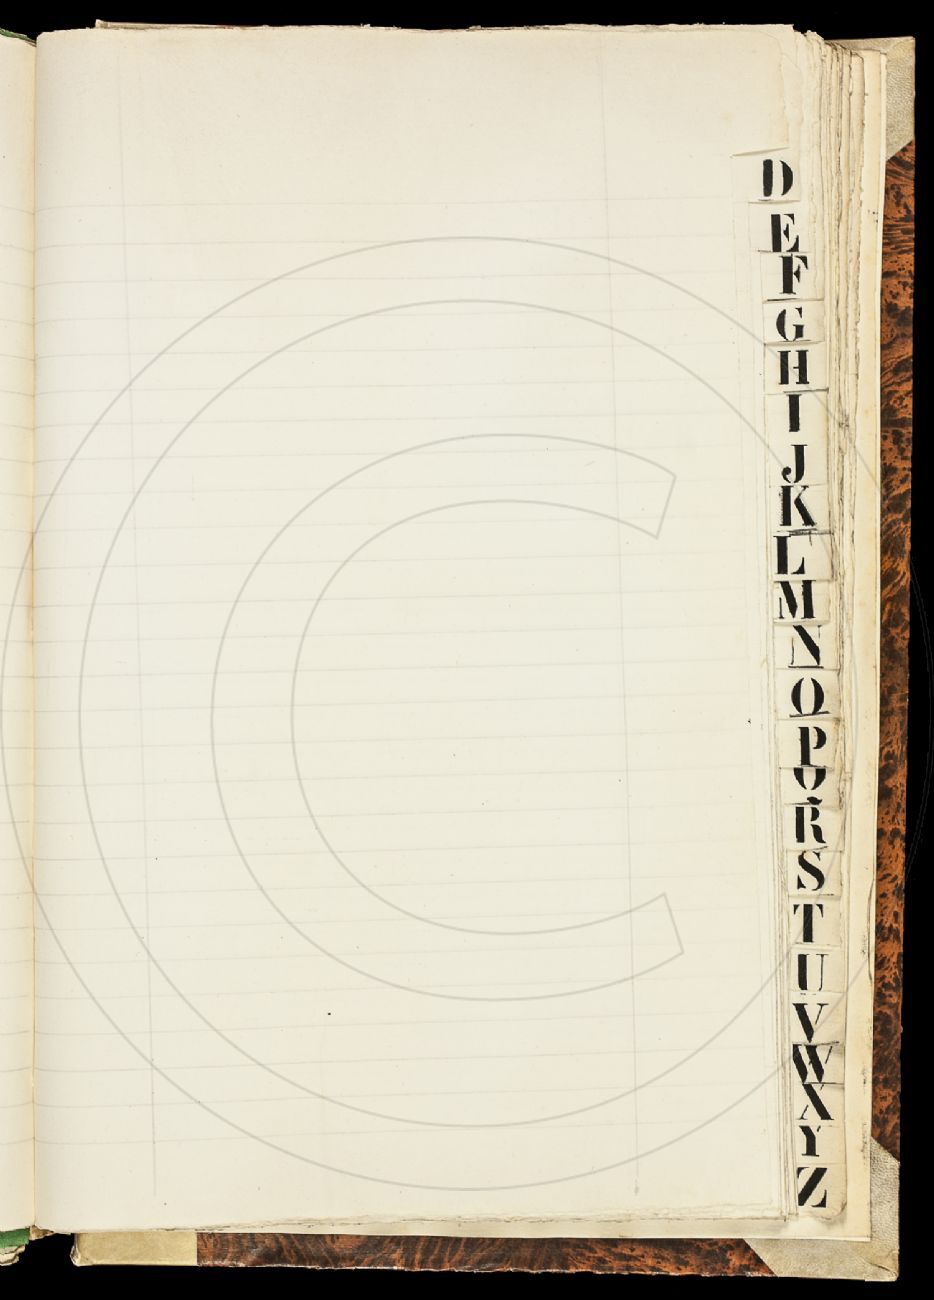 D
E
F
G
H
I
J
K
L
M
N
O
P
Q
R
S
T
U
V
W
X
Y
Z
©